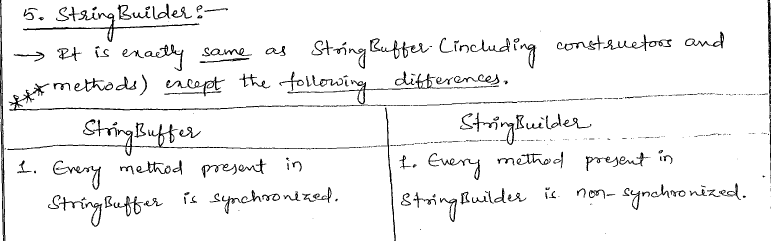 5. StringBuilder :—
→ It is exactly same as StringBuffer (including constructors and
*** methods) except the following differences.
StringBuffer
StringBuilder
1. Every method present in
StringBuffer is synchronized.
1. Every method present in
StringBuilder is non-synchronized.